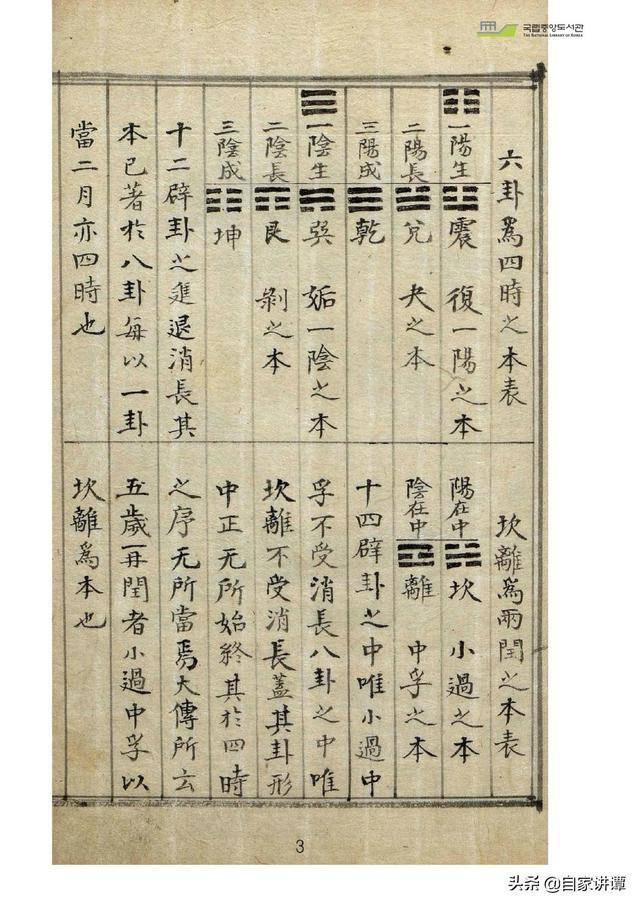 국립중앙도서관
THE NATIONAL LIBRARY OF KOREA
六卦爲四時之本表
一陽生 震 復一陽之本
二陽長 兌 夬之本
三陽成 乾
一陰生 巽 姤一陰之本
二陰長 艮 剝之本
三陰成 坤
十二辟卦之進退消長其
本已著於八卦每以一卦
當二月亦四時也
坎離爲兩閏之本表
陽在中 坎 小過之本
陰在中 離 中孚之本
十四辟卦之中唯小過中
孚不受消長八卦之中唯
坎離不受消長蓋其卦形
中正无所始終其於四時
之序无所當焉大傳所云
五歲再閏者小過中孚以
坎離爲本也
3
头条 @自家讲谭